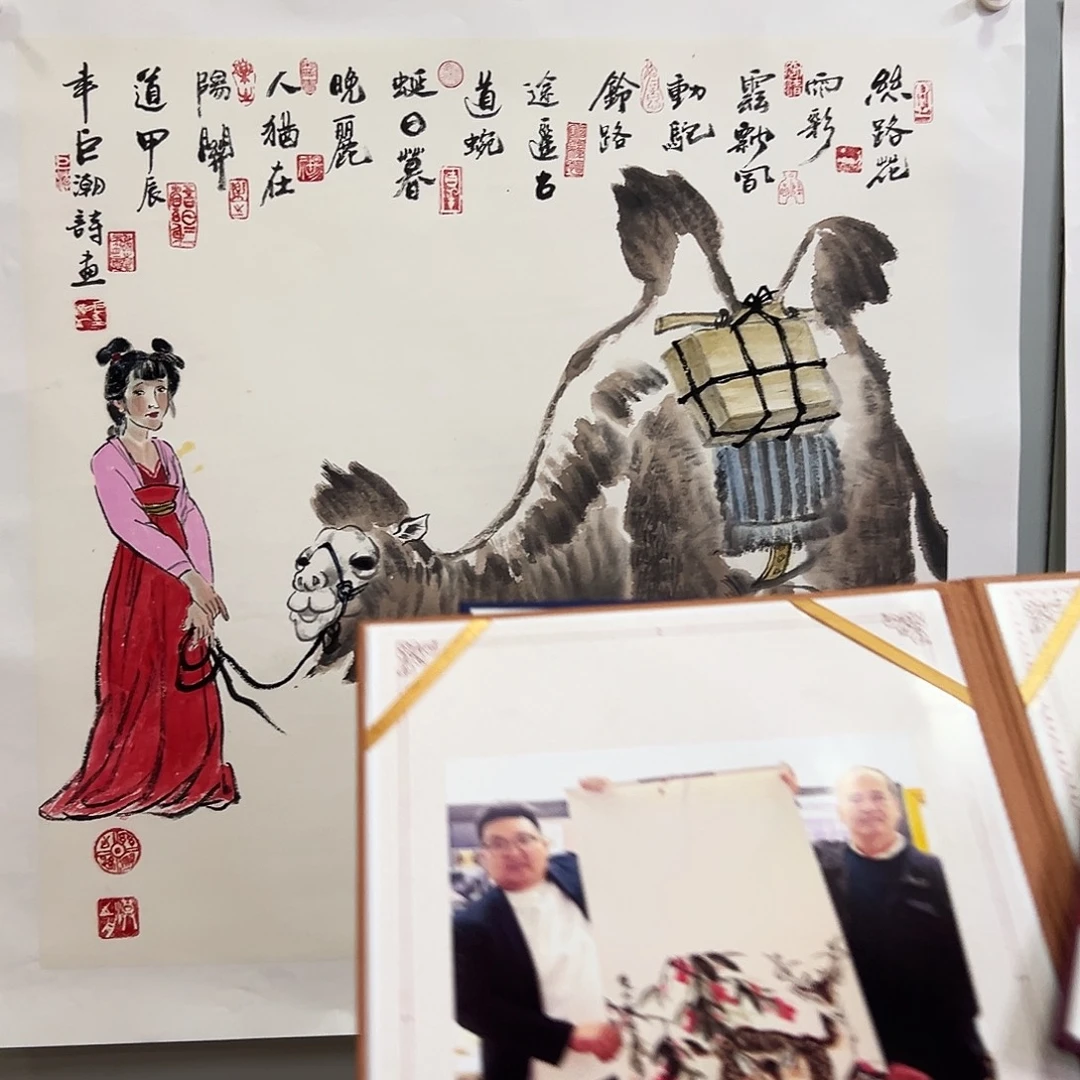 絲路花
雨彩
雲飄風
動駝
鈴路
途遥古
道蜿
蜒日暮
晚麗
人猶在
陽關
道甲辰
年巨潮詩畫